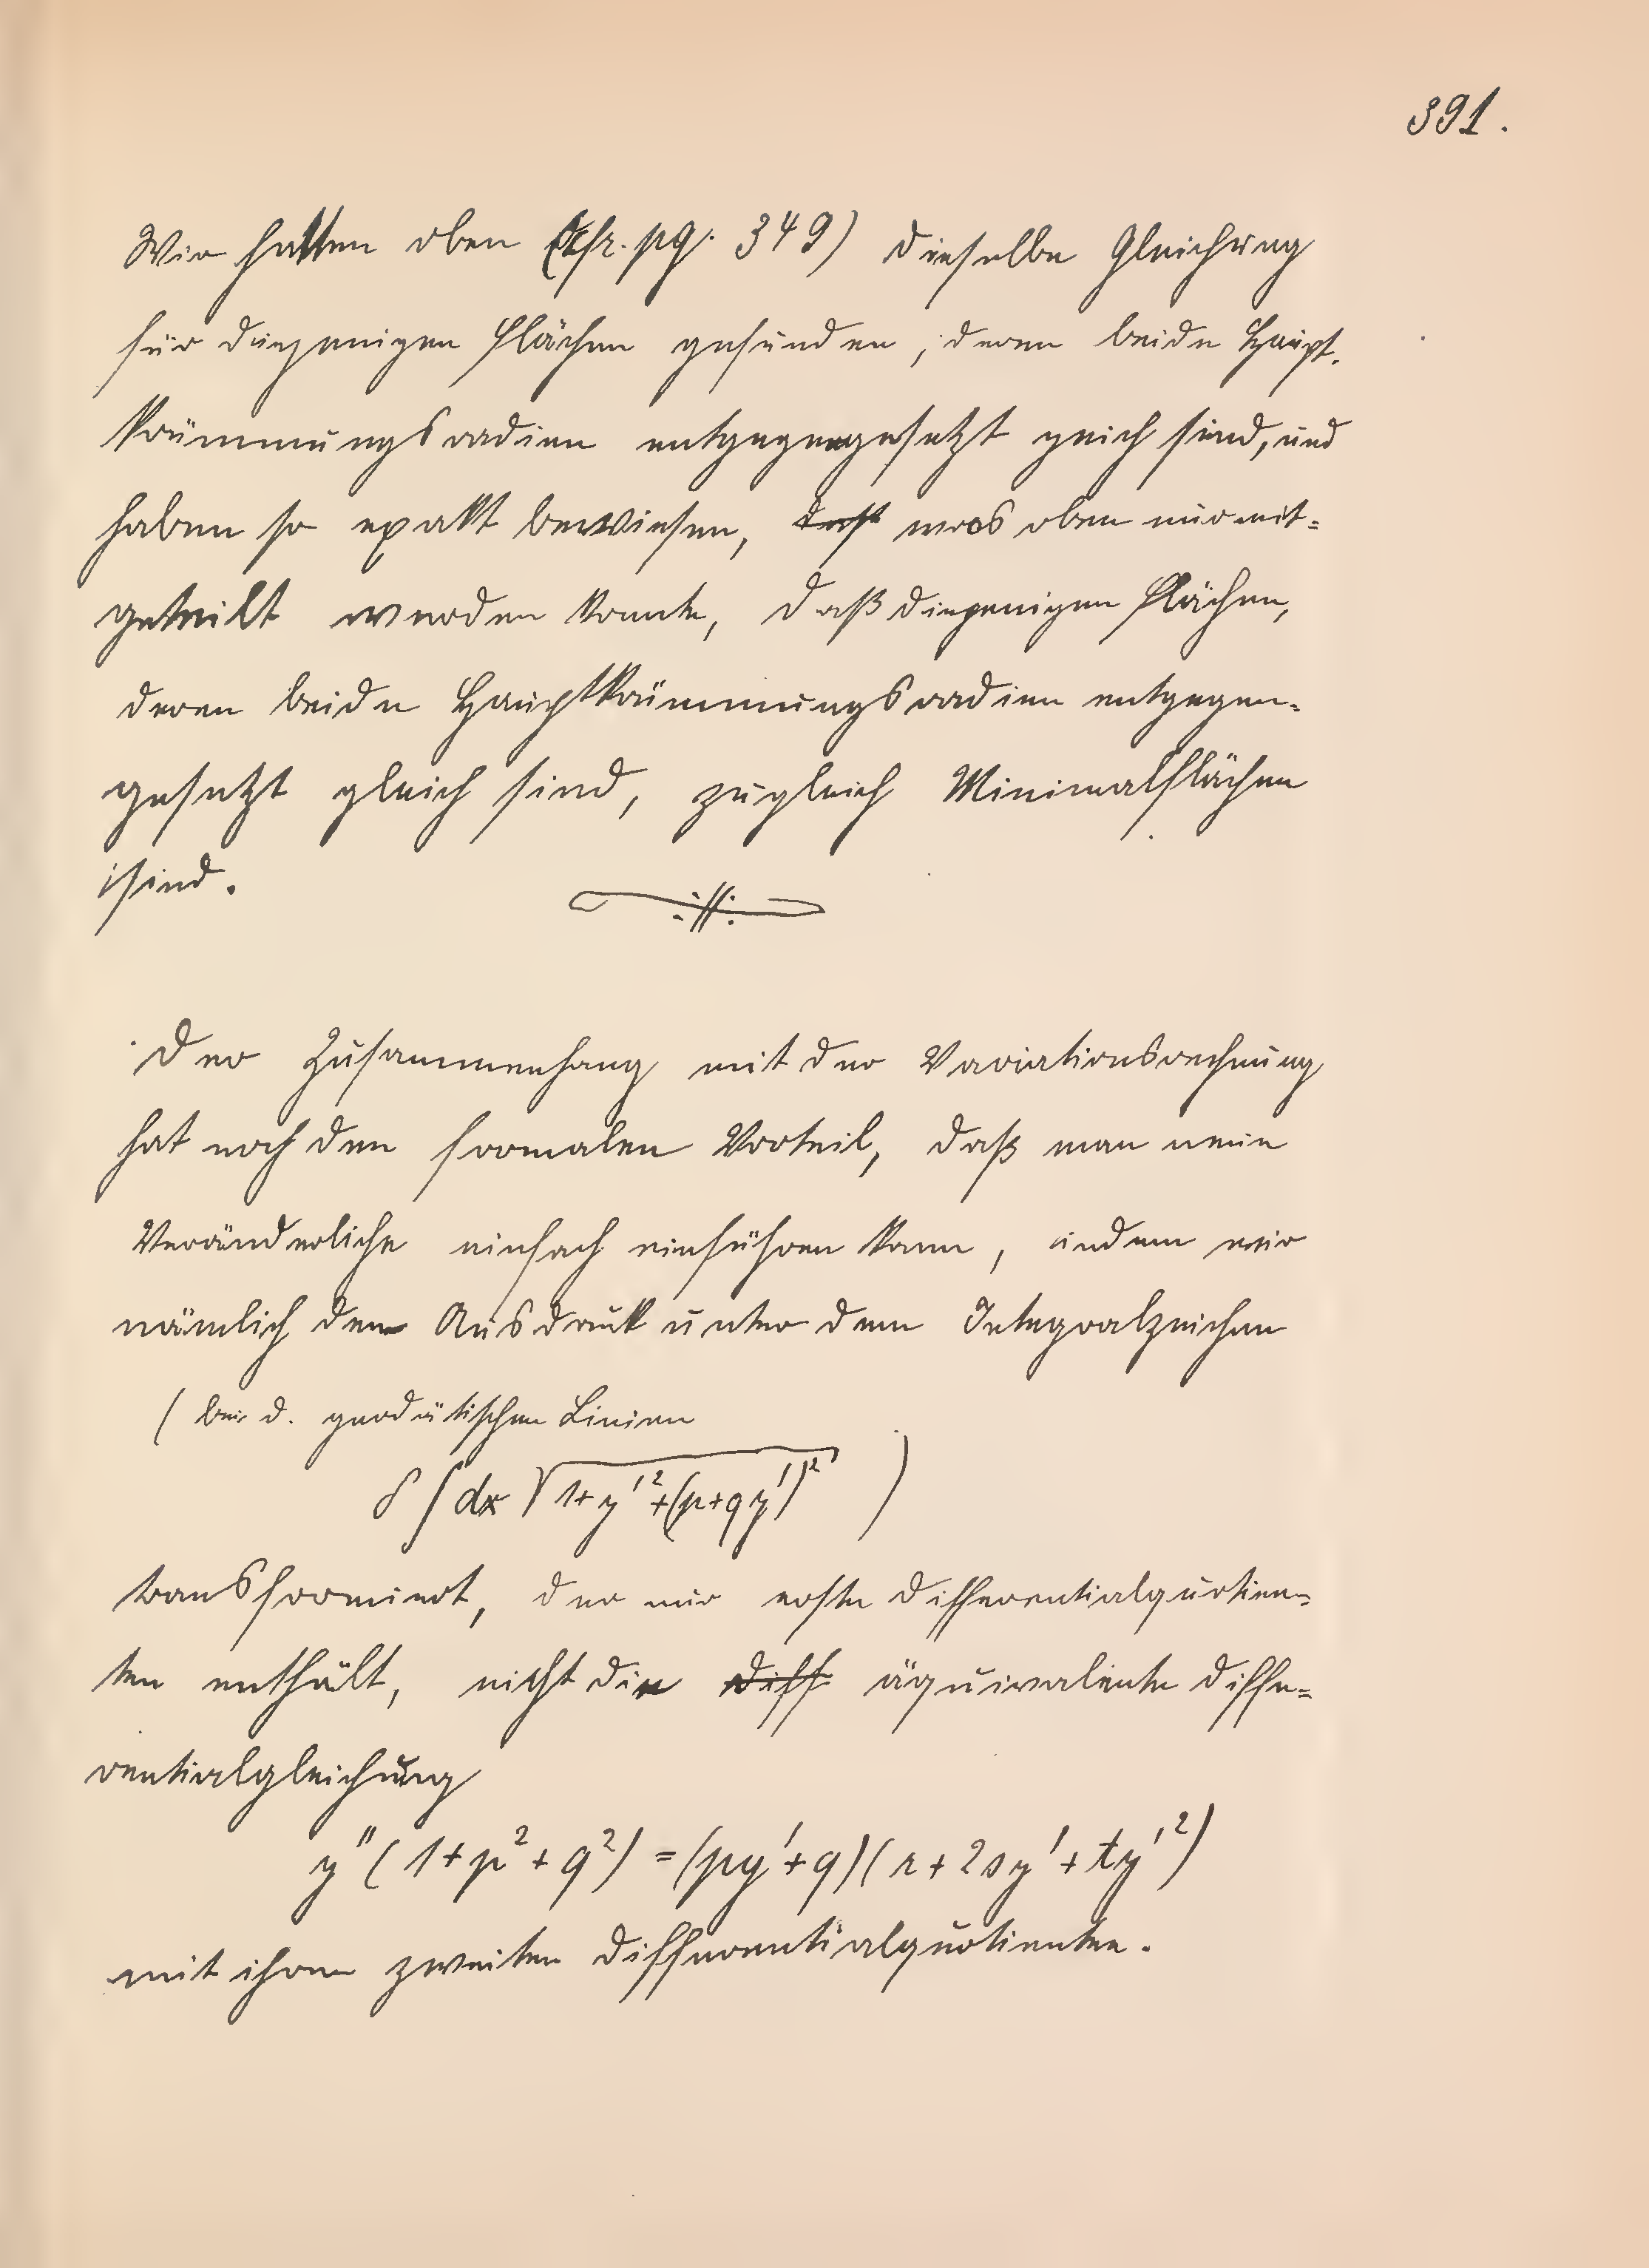 391.
Wir hatten oben (cfr. pg. 349) dieselbe Gleichung
für diejenigen Flächen gefunden, deren beide Haupt-
krümmungsradien entgegengesetzt gleich sind, und
haben so exakt bewiesen, daß was oben nur mit=
geteilt werden konnte, daß diejenigen Flächen,
deren beide Hauptkrümmungsradien entgegen=
gesetzt gleich sind, zugleich Minimalflächen
sind.
Der Zusammenhang mit der Variationsrechnung
hat noch den formalen Vorteil, daß man neue
Veränderliche einfach einführen kann, indem wir
nämlich den Ausdruck unter dem Integralzeichen
( bei d. geodätischen Linien
δ ∫ dx √(1+y'²+(p+qy')²) )
transformiert, der nur erste Differentialquotien=
ten enthält, nicht die Diff äquivalente Diffe=
rentialgleichung
y''(1+p²+q²) = (py'+q)(r+2sy'+ty'²)
mit ihren zweiten Differentialquotienten.